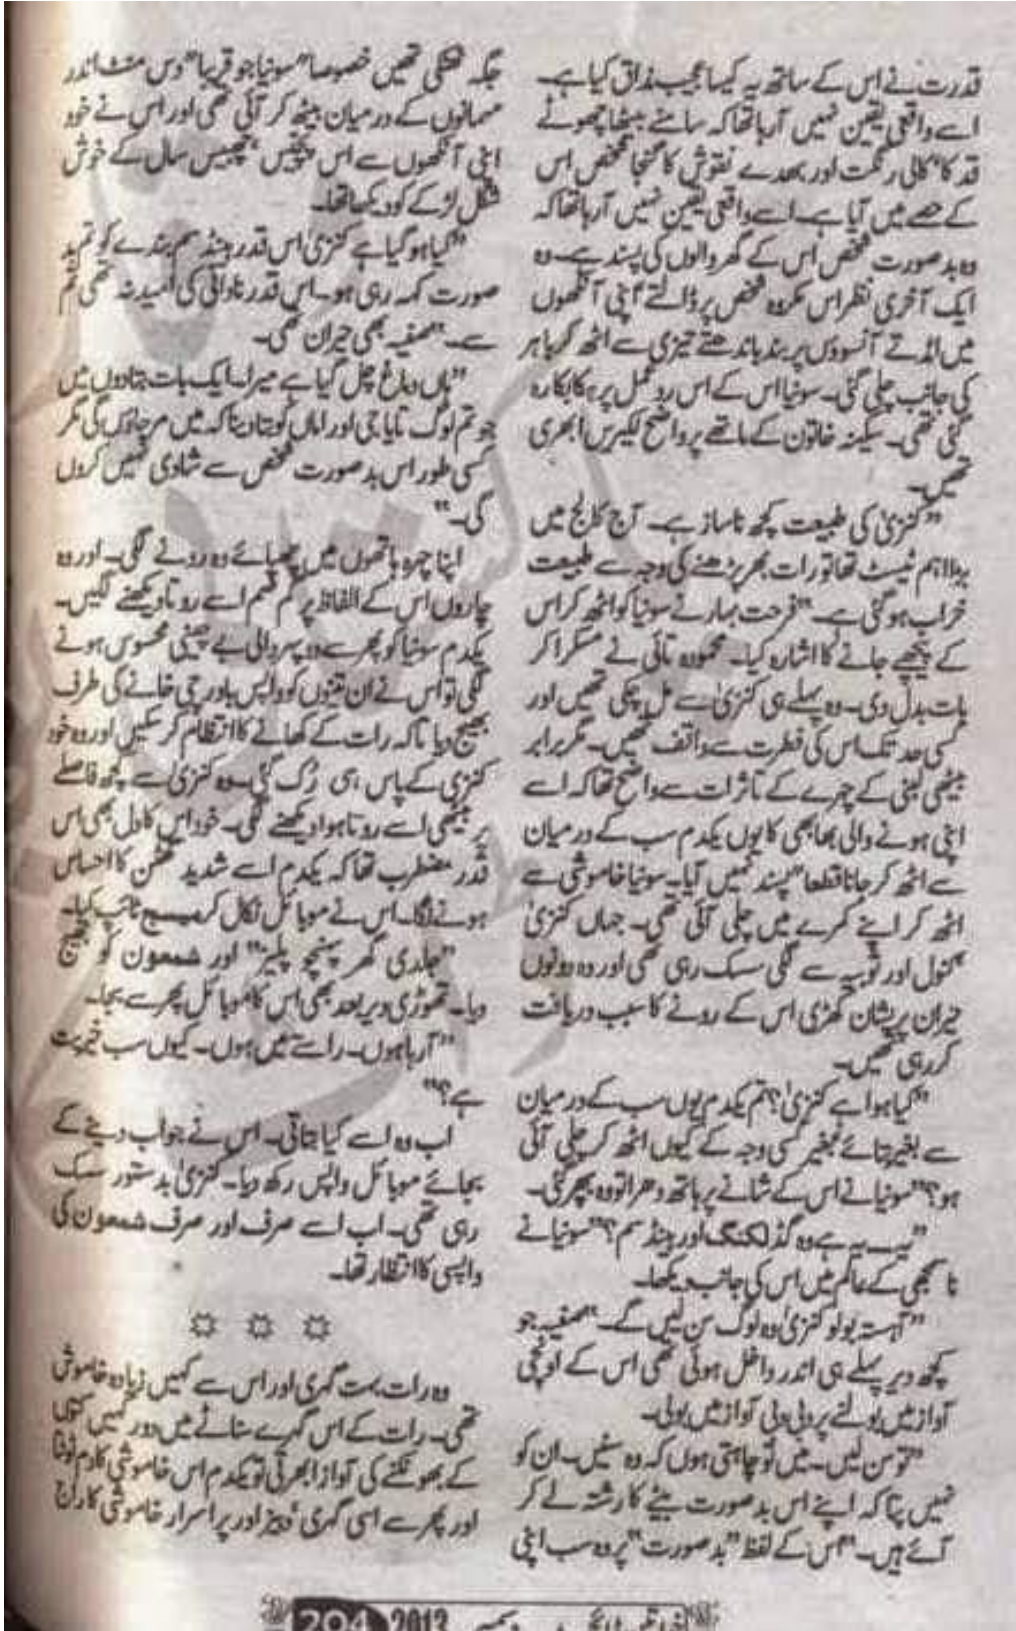 قدرت نے اس کے ساتھ یہ کیسا عجیب مذاق کیا ہے۔
اسے واقعی یقین نہیں آرہا تھا کہ سامنے بیٹھا چھوٹے
قد کا‘ کالی رنگت اور بھدے نقوش کا گنجا شخص اس
کے حصے میں آیا ہے۔ اسے واقعی یقین نہیں آرہا تھا کہ
وہ بدصورت شخص اس کے گھر والوں کی پسند ہے۔ وہ
ایک آخری نظر اس مکروہ شخص پر ڈالتے‘ اپنی آنکھوں
میں امڈتے آنسوؤں پر بند باندھتے تیزی سے اٹھ کر باہر
کی جانب چلی گئی۔ سونیا اس کے اس ردعمل پر ہکابکا رہ
گئی تھی۔ سکینہ خاتون کے ماتھے پر واضح لکیریں ابھری
تھیں۔
”کنزیٰ کی طبیعت کچھ ناساز ہے۔ آج کالج میں
بڑا اہم ٹیسٹ تھا تو رات بھر پڑھنے کی وجہ سے طبیعت
خراب ہو گئی ہے۔“ فرحت بہار نے سونیا کو اٹھ کر اس
کے پیچھے جانے کا اشارہ کیا۔ محمودہ تائی نے مسکرا کر
بات بدل دی۔ وہ پہلے ہی کنزیٰ سے مل چکی تھیں اور
کسی حد تک اس کی فطرت سے واقف تھیں۔ مگر برابر
بیٹھی لبنیٰ کے چہرے کے تاثرات سے واضح تھا کہ اسے
اپنی ہونے والی بھابھی کا یوں یکدم سب کے درمیان
سے اٹھ کر جانا قطعا“ پسند نہیں آیا۔ سونیا خاموشی سے
اٹھ کر اپنے کمرے میں چلی آئی تھی۔ جہاں کنزیٰ
کنول اور ثوبیہ سے لگی سسک رہی تھی اور وہ دونوں
حیران پریشان کھڑی اس کے رونے کا سبب دریافت
کر رہی تھیں۔
”کیا ہوا ہے کنزیٰ؟ تم یکدم یوں سب کے درمیان
سے بغیر بتائے بغیر کسی وجہ کے کیوں اٹھ کر چلی آئی
ہو؟“ سونیا نے اس کے شانے پر ہاتھ دھرا تو وہ بپھر گئی۔
”یہ۔۔ یہ ہے وہ گڈ لکنگ اور ہینڈسم؟“ سونیا نے
ناسمجھی کے عالم میں اس کی جانب دیکھا۔
”آہستہ بولو کنزیٰ وہ لوگ سن لیں گے۔“ صفیہ جو
کچھ دیر پہلے ہی اندر داخل ہوئی تھی اس کے اونچی
آواز میں بولنے پر دبی دبی آواز میں بولی۔
”تو سن لیں۔ میں تو چاہتی ہوں کہ وہ سنیں۔ ان کو
نہیں پتا کہ اپنے اس بدصورت بیٹے کا رشتہ لے کر
آئے ہیں۔“ اس کے لفظ ”بدصورت“ پر وہ سب اپنی
جگہ ٹھٹکی تھیں خصوصا“ سونیا جو قریبا“ دس منٹ اندر
مہمانوں کے درمیان بیٹھ کر آئی تھی اور اس نے خود
اپنی آنکھوں سے اس پچیس‘ چھبیس سال کے خوش
شکل لڑکے کو دیکھا تھا۔
”کیا ہو گیا ہے کنزیٰ اس قدر ہینڈسم بندے کو تم بد
صورت کہہ رہی ہو۔ اس قدر نادانی کی امید نہ تھی تم
سے۔“ صفیہ بھی حیران تھی۔
”ہاں دماغ چل گیا ہے میرا۔ ایک بات بتا دوں میں
جو تم لوگ تایا جی اور اماں کو بتا دینا کہ میں مرجاؤں گی مگر
کسی طور اس بدصورت شخص سے شادی نہیں کروں
گی۔“
اپنا چہرہ ہاتھوں میں چھپائے وہ رونے لگی۔ اور وہ
چاروں اس کے الفاظ پر گم صم اسے روتا دیکھنے لگیں۔
یکدم سونیا کو پھر سے دوپہر والی بے چینی محسوس ہونے
لگی تو اس نے ان تینوں کو واپس باورچی خانے کی طرف
بھیج دیا تاکہ رات کے کھانے کا انتظام کر سکیں اور وہ خود
کنزیٰ کے پاس ہی رک گئی۔ وہ کنزیٰ سے کچھ فاصلے
پر بیٹھی اسے روتا ہوا دیکھنے لگی۔ خود اس کا دل بھی اس
قدر مضطرب تھا کہ یکدم اسے شدید گھٹن کا احساس
ہونے لگا۔ اس نے موبائل نکال کر میسج ٹائپ کیا۔
”جلدی گھر پہنچو پلیز“ اور شمعون کو بھیج
دیا۔ تھوڑی دیر بعد بھی اس کا موبائل پھر سے بجا۔
”آرہا ہوں۔ راستے میں ہوں۔ کیوں سب خیریت
ہے؟“
اب وہ اسے کیا بتاتی۔ اس نے جواب دینے کے
بجائے موبائل واپس رکھ دیا۔ کنزیٰ بدستور سسک
رہی تھی۔ اب اسے صرف اور صرف شمعون کی
واپسی کا انتظار تھا۔
وہ رات بہت گہری اور اس سے کہیں زیادہ خاموش
تھی۔ رات کے اس گہرے سناٹے میں دور کہیں کتوں
کے بھونکنے کی آواز ابھرتی تو یکدم اس خاموشی کا دم ٹوٹتا
اور پھر سے اسی گہری‘ دبیز اور پراسرار خاموشی کا راج
204 2012